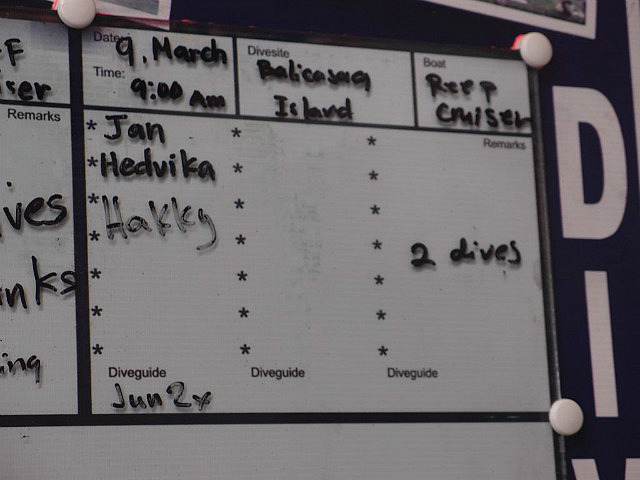 F
iser
Remarks
ives
nks
ing
Date:
9. March
Time:
9:00 Am
Divesite
Balicasag
Island
Boat
Reef
Cruiser
Remarks
* Jan * *
* Hedvika * *
* Hakky * *
* * *
* * *
* * *
* * *
2 dives
Diveguide Diveguide Diveguide
Jun 2x
DI